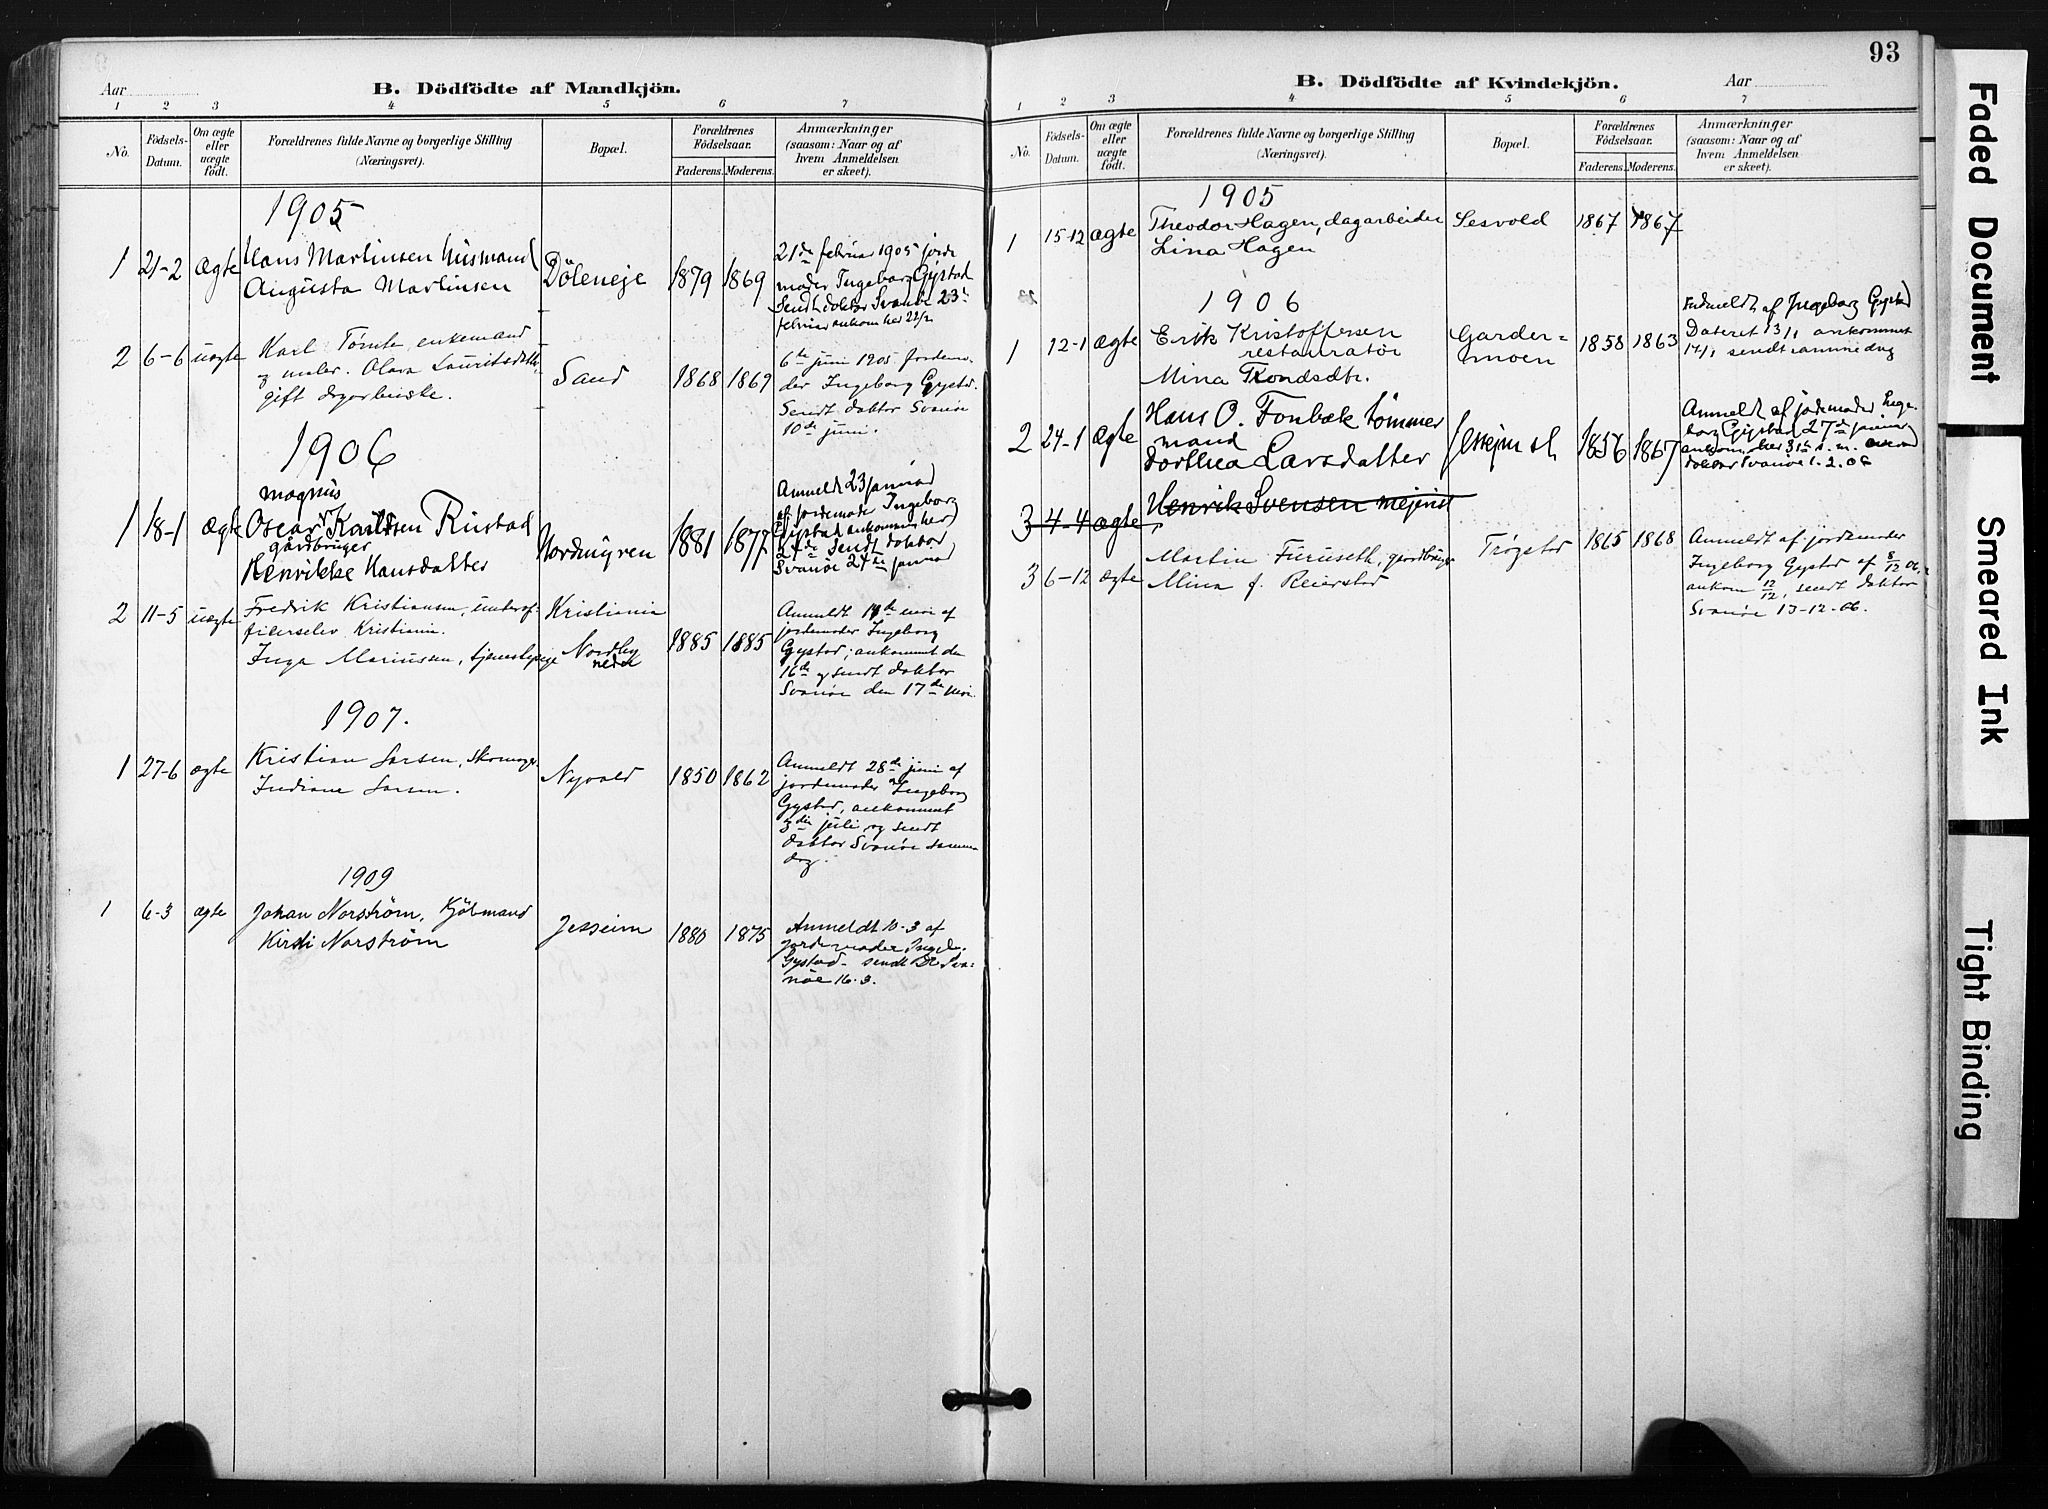 93
Aar
B. Dödfödte af Mandkjön.
1 2 3 4 5 6 7
No.
Födsels-
Datum.
Om ægte
eller
uægte
født.
Forældrenes fulde Navne og borgerlige Stilling
(Næringsvei).
Bopæl.
Forældrenes
Födselsaar.
Faderens. Moderens.
Anmærkninger
(saasom: Naar og af
hvem Anmeldelsen
er skeet).
1905
1 21-2 Ægte Hans Martinsen Husmand
Augusta Martinsen
Döleneje 1879 1869
21de februar 1905 jorde
moder Ingeborg Gystad
Sendt doktor Svanöe 23de
februar ankom her 22/2
2 6-6 uægte Karl Tømte, enkemand
og maler. Olava Lauritsdatter,
gift
Sand 1868 1869
6te juni 1905 Jordemo-
der Ingeborg Gystad.
Sendt doktor Svanøe
10de juni.
1906
magnus
1 18-1 Ægte Oscar Karlsen Rustad
gårdbruger
Henrikke Hansdatter
Nordmyren 1881 1877
Anmeldt 23 januar
af jordemoder Ingeborg
Gystad ankommen her
24de Sendt doktor
Svanöe 24de januar
2 11-5 uægte Fredrik Kristiansen, underof-
ficerselev, Kristiania.
Inga Mariussen, tjenestepige
Kristiania
Nordby
nedre
1885 1885
Anmeldt 14de mai af
jordemoder Ingeborg
Gystad; ankommet den
16de og sendt doktor
Svanøe den 17de mai.
1907.
1 27-6 ægte Kristian Larsen, skomager
Indiane Larsen.
Nyvold 1850 1862
Anmeldt 28de juni af
jordemoder Ingeborg
Gystad, ankommet
3die juli og sendt
doktor Svanøe samme
dag.
1909
1 6-3 ægte Johan Norström, Kjöbmand
Kirsti Norström
Jessheim 1880 1875
Anmeldt 10-3 af
Jordemoder Ingeb.
Gystad - sendt Dr Sva-
nöe 16-3.
B. Dödfödte af Kvindekjön.
Aar
1 2 3 4 5 6 7
No.
Födsels-
Datum.
Om ægte
eller
uægte
født.
Forældrenes fulde Navne og borgerlige Stilling
(Næringsvei).
Bopæl.
Forældrenes
Födselsaar.
Faderens. Moderens.
Anmærkninger
(saasom: Naar og af
hvem Anmeldelsen
er skeet).
1905
1 15-12 ægte Theodor Hagen, dagarbeider
Lina Hagen
Sesvold 1867 1867
1906
1 12-1 ægte Erik Kristoffersen
restauratør
Mina Trondsdtr.
Garder-
moen
1858 1863
Indmeldt af Ingeborg Gystad
Dateret 13/1 ankommet
14/1 sendt samme dag
2 24-1 Ægte Hans O. Fonbæk tömmer
mand
Dorthea Larsdatter
1856 1867
Anmeldt af jordemoder Inge-
borg Gystad 27de januar
ankom her 31te s. m.
doktor Svanöe 1-2-06
3 4-4 ægte Henrik Svensen mejerist
3 6-12 ægte Martin Furuseth, gardbruger
Mina f. Reierstad
Trøgstad 1865 1868
Anmeldt af jordemoder
Ingeborg Gystad af 8/12 06,
ankom 12/12, sendt doktor
Svanøe 13-12-06.
Faded Document
Smeared Ink
Tight Binding